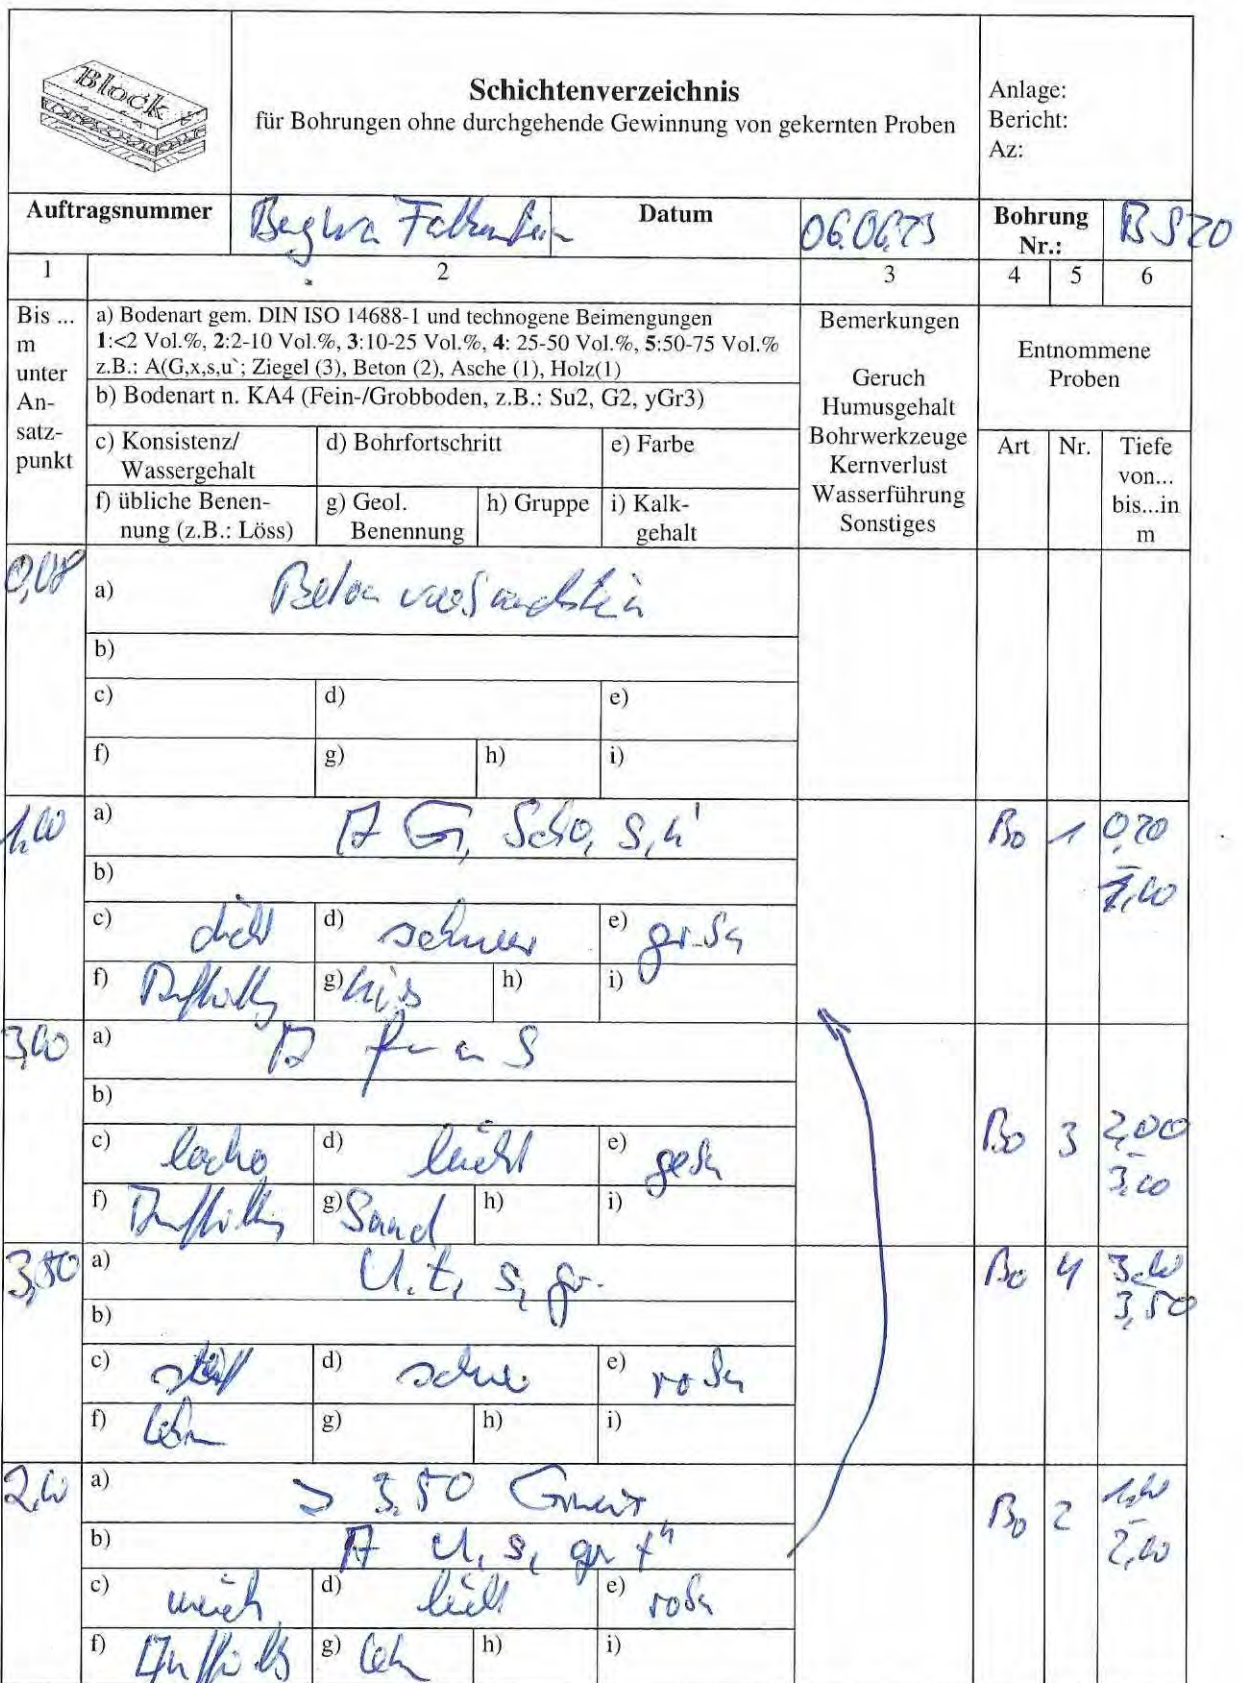 Block
Schichtenverzeichnis
für Bohrungen ohne durchgehende Gewinnung von gekernten Proben
Anlage:
Bericht:
Az:
Auftragsnummer
Datum
Bohrung
Nr.:
1 2 3 4 5 6
Bis ...
m
unter
An-
satz-
punkt
a) Bodenart gem. DIN ISO 14688-1 und technogene Beimengungen
1:<2 Vol.%, 2:2-10 Vol.%, 3:10-25 Vol.%, 4: 25-50 Vol.%, 5:50-75 Vol.%
z.B.: A(G,x,s,u`; Ziegel (3), Beton (2), Asche (1), Holz(1)
b) Bodenart n. KA4 (Fein-/Grobboden, z.B.: Su2, G2, yGr3)
c) Konsistenz/
Wassergehalt
d) Bohrfortschritt
e) Farbe
f) übliche Benen-
nung (z.B.: Löss)
g) Geol.
Benennung
h) Gruppe
i) Kalk-
gehalt
Bemerkungen
Geruch
Humusgehalt
Bohrwerkzeuge
Kernverlust
Wasserführung
Sonstiges
Entnommene
Proben
Art
Nr.
Tiefe
von...
bis...in
m
0,08
a) Beton
b)
c) d) e)
f) g) h) i)
1,00
a) A G,
b)
c) dicht d) schwer e)
f) g) h) i)
Bo 1
1,00
3,00
a) A
b)
c) locker d) leicht e)
f) g) Sand h) i)
Bo 3 2,00
-
3,00
3,50
a) U, t, s, gr
b)
c) steif d) schwer e)
f) Lehm g) h) i)
Bo 4 3,00
3,50
2,00
a) > 3,50
b) A U, s, gr
c) weich d) leicht e)
f) g) Lehm h) i)
Bo 2 1,00
-
2,00